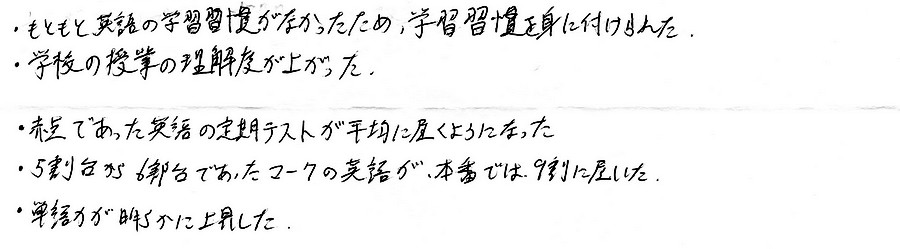 ・もともと英語の学習習慣がなかったため、学習習慣を身に付けられた.
・学校の授業の理解度が上がった.
・赤点であった英語の定期テストが平均に届くようになった
・5割台から6割台であったマークの英語が、本番では、9割に届いた.
・単語力が明らかに上昇した.